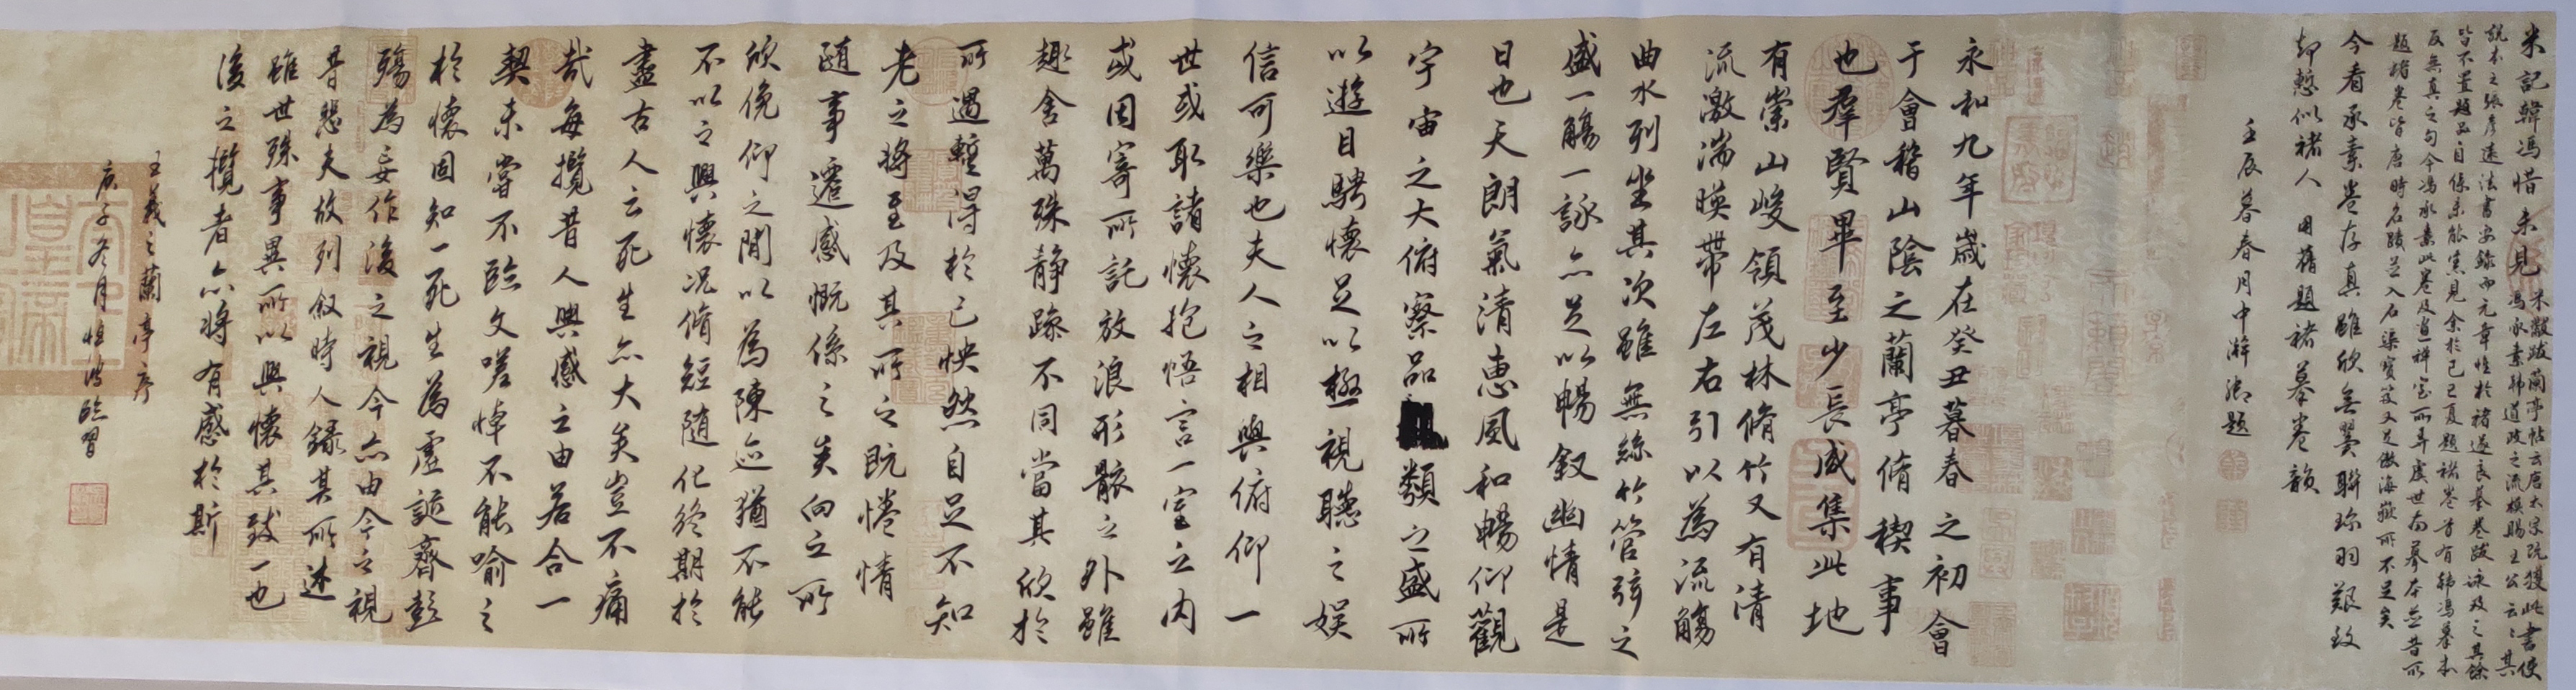 米記韓馮惜未見 米黻跋蘭亭帖云唐太宗既獲此書使
馮承素韓道政之流模賜王公云云其
說本之張彥遠法書要錄而元章惟於褚遂良摹卷跋詠及之其餘
皆不置題品自係未能悉見余於己巳夏題褚卷有韓馮摹本
反無真之句今馮承素此卷及 所弆虞世南摹本並昔所
題褚卷皆唐時名蹟並入石渠寶笈又足傲海嶽所不足矣
今看承素卷存真雖欣無翼聯珍羽艱致
却慙似褚人 用舊題褚摹卷韻
壬辰暮春月中澣御題
永和九年歲在癸丑暮春之初會
于會稽山陰之蘭亭脩稧事
也羣賢畢至少長咸集此地
有崇山峻領茂林脩竹又有清
流激湍暎帶左右引以為流觴
曲水列坐其次雖無絲竹管弦之
盛一觴一詠亦足以暢叙幽情是
日也天朗氣清惠風和暢仰觀
宇宙之大俯察品類之盛所
以遊目騁懷足以極視聽之娛
信可樂也夫人之相與俯仰一
世或取諸懷抱悟言一室之內
或因寄所託放浪形骸之外雖
趣舍萬殊静躁不同當其欣於
所遇暫得於己怏然自足不知
老之將至及其所之既惓情
隨事遷感慨係之矣向之所
欣俛仰之閒以為陳迹猶不能
不以之興懷況脩短隨化終期於
盡古人云死生亦大矣豈不痛
哉每攬昔人興感之由若合一
契未嘗不臨文嗟悼不能喻之
於懷固知一死生為虛誕齊彭
殤為妄作後之視今亦由今之視
昔悲夫故列叙時人錄其所述
雖世殊事異所以興懷其致一也
後之攬者亦將有感於斯
王羲之蘭亭序
庚子冬月 臨習